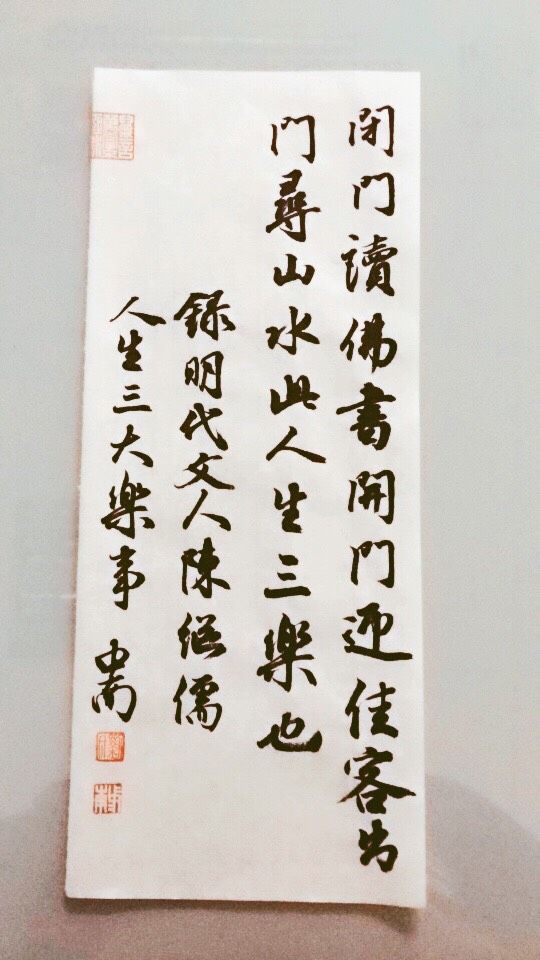 闭門讀佛書開門迎佳客出
門尋山水此人生三樂也
録明代文人陳继儒
人生三大樂事